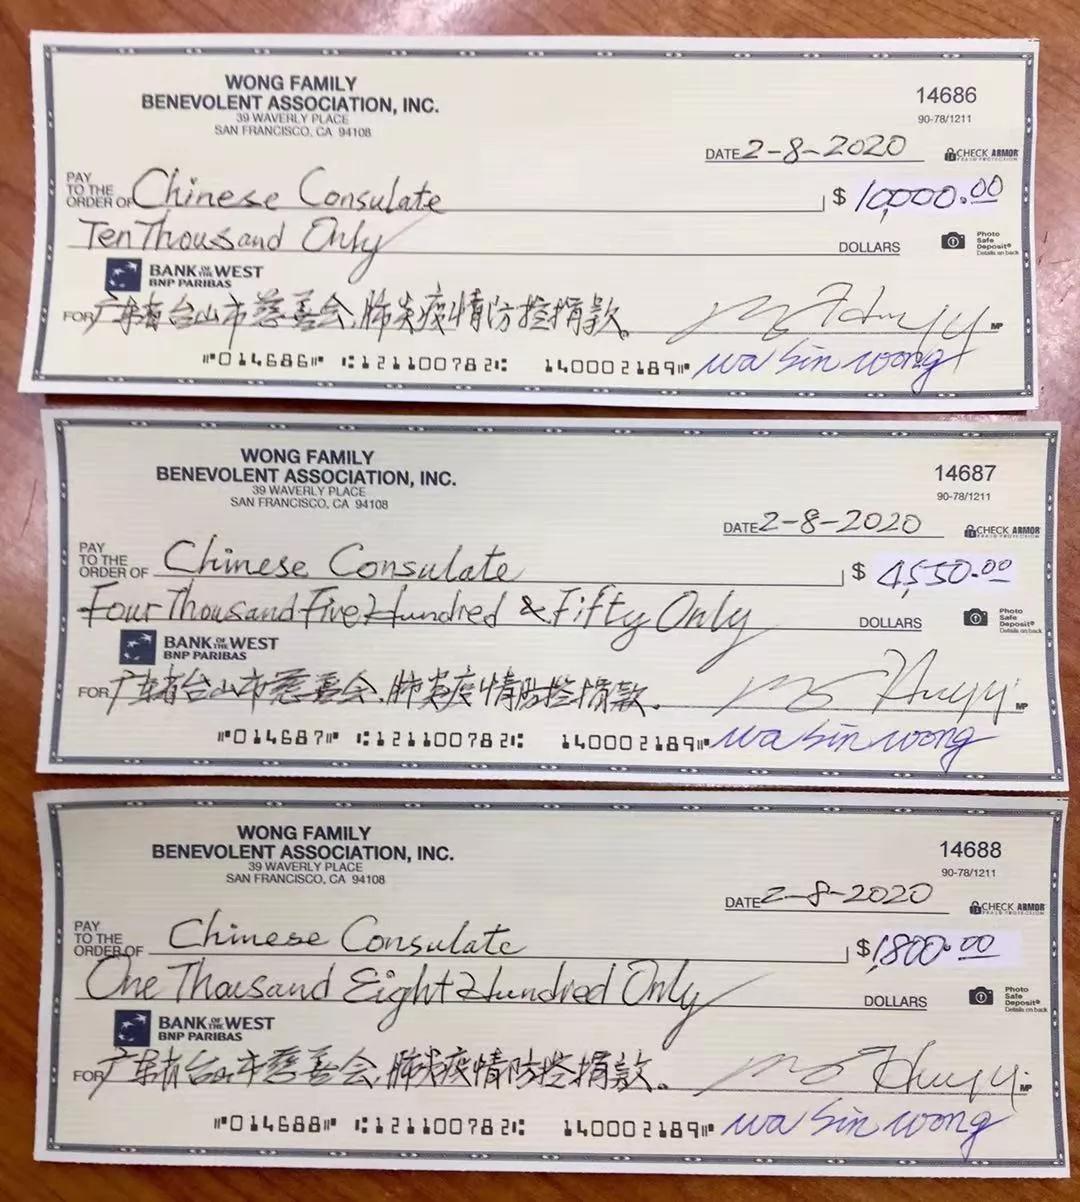 WONG FAMILY
BENEVOLENT ASSOCIATION, INC.
39 WAVERLY PLACE
SAN FRANCISCO, CA 94108
14686
90-78/1211
DATE 2-8-2020
CHECK ARMOR
PAY TO THE ORDER OF Chinese Consulate $ 10,000.00
Ten Thousand Only DOLLARS
Photo Safe Deposit® Details on back
BANK OF THE WEST
BNP PARIBAS
FOR 广东省台山市慈善会,肺炎疫情防控捐款。
MP
⑈014686⑈ ⑆121100782⑆ 140002189⑈
wa sin wong
WONG FAMILY
BENEVOLENT ASSOCIATION, INC.
39 WAVERLY PLACE
SAN FRANCISCO, CA 94108
14687
90-78/1211
DATE 2-8-2020
CHECK ARMOR
PAY TO THE ORDER OF Chinese Consulate $ 4,550.00
Four Thousand Five Hundred & Fifty Only DOLLARS
Photo Safe Deposit® Details on back
BANK OF THE WEST
BNP PARIBAS
FOR 广东省台山市慈善会,肺炎疫情防控捐款。
MP
⑈014687⑈ ⑆121100782⑆ 140002189⑈
wa sin wong
WONG FAMILY
BENEVOLENT ASSOCIATION, INC.
39 WAVERLY PLACE
SAN FRANCISCO, CA 94108
14688
90-78/1211
DATE 2-8-2020
CHECK ARMOR
PAY TO THE ORDER OF Chinese Consulate $ 1,800.00
One Thousand Eight Hundred Only DOLLARS
Photo Safe Deposit® Details on back
BANK OF THE WEST
BNP PARIBAS
FOR 广东省台山市慈善会,肺炎疫情防控捐款。
MP
⑈014688⑈ ⑆121100782⑆ 140002189⑈
wa sin wong